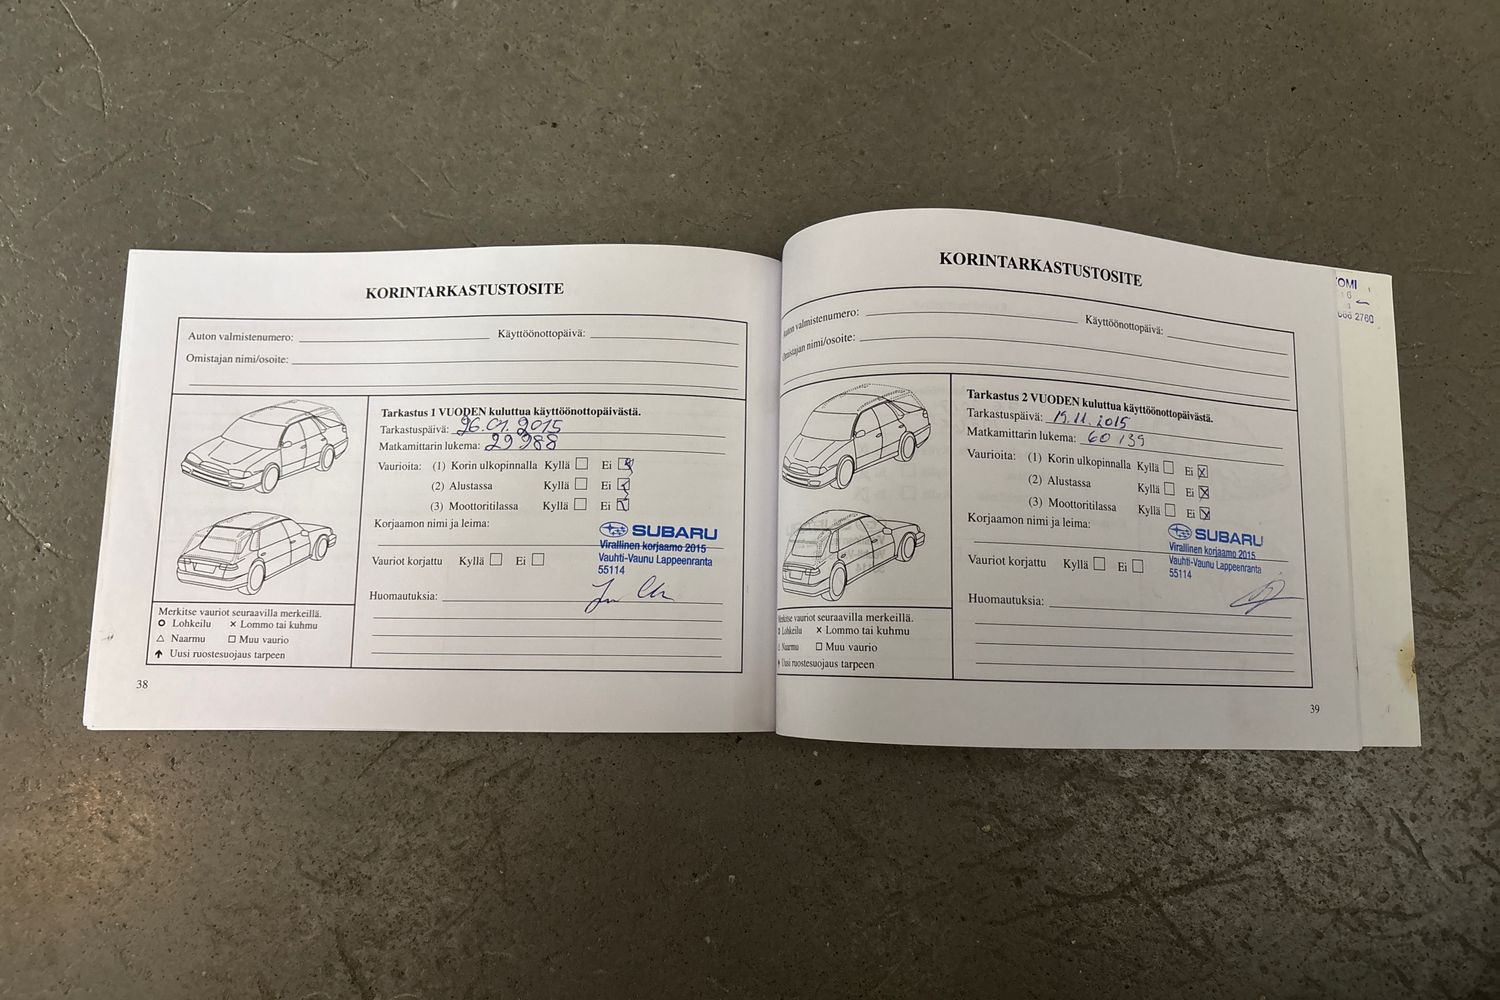 KORINTARKASTUSTOSITE
Auton valmistenumero: Käyttöönottopäivä:
Omistajan nimi/osoite:
Tarkastus 1 VUODEN kuluttua käyttöönottopäivästä.
Tarkastuspäivä: 26.01.2015
Matkamittarin lukema: 29 988
Vaurioita: (1) Korin ulkopinnalla Kyllä Ei
(2) Alustassa Kyllä Ei
(3) Moottoritilassa Kyllä Ei
Korjaamon nimi ja leima:
SUBARU
Virallinen korjaamo 2015
Vauhti-Vaunu Lappeenranta
55114
Vauriot korjattu Kyllä Ei
Huomautuksia:
Merkitse vauriot seuraavilla merkeillä.
Lohkeilu Lommo tai kuhmu
Naarmu Muu vaurio
Uusi ruostesuojaus tarpeen
38
KORINTARKASTUSTOSITE
Auton valmistenumero: Käyttöönottopäivä:
Omistajan nimi/osoite:
Tarkastus 2 VUODEN kuluttua käyttöönottopäivästä.
Tarkastuspäivä: 19.11.2015
Matkamittarin lukema: 60 139
Vaurioita: (1) Korin ulkopinnalla Kyllä Ei
(2) Alustassa Kyllä Ei
(3) Moottoritilassa Kyllä Ei
Korjaamon nimi ja leima:
SUBARU
Virallinen korjaamo 2015
Vauhti-Vaunu Lappeenranta
55114
Vauriot korjattu Kyllä Ei
Huomautuksia:
Merkitse vauriot seuraavilla merkeillä.
Lohkeilu Lommo tai kuhmu
Naarmu Muu vaurio
Uusi ruostesuojaus tarpeen
39
2760